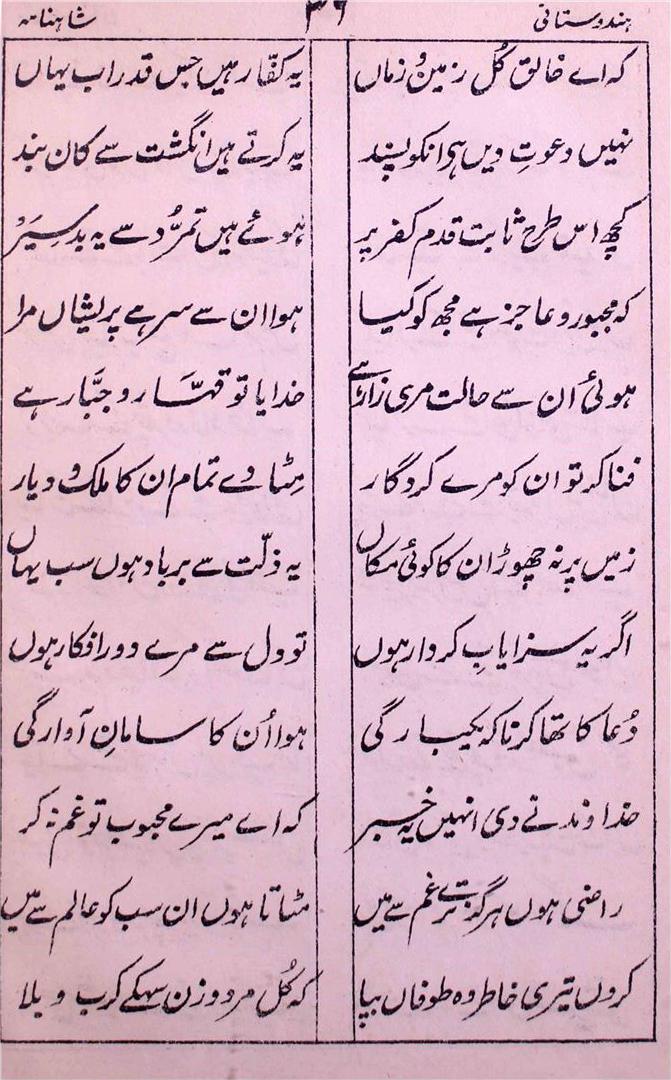 ہندوستانی ۳۶ شاہنامہ
کہ اے خالق کُل زمین و زماں یہ کفّار ہیں جس قدر اب یہاں
نہیں دعوتِ دیں ہی انکو پسند یہ کرتے ہیں انگشت سے کان بند
کچھ اس طرح ثابت قدم کفر پر ہوئے ہیں تمرُّد سے یہ بد سِیَر
کہ مجبور و عاجز ہے مجھ کو کیا ہوا ان سے سر ہے پریشاں مرا
ہوئی ان سے حالت مری زار ہے خدایا تو قہّار و جبَّار ہے
فنا کر تو ان کو مرے کردگار مِٹا دے تمام ان کا ملک و دیار
زمیں پر نہ چھوڑ ان کا کوئی مکاں یہ ذلّت سے برباد ہوں سب یہاں
اگر یہ سزا یابِ کردار ہوں تو دل سے مرے دور افکار ہوں
دُعا کا تھا کرنا کہ یکبارگی ہوا اُن کا سامانِ آوارگی
خداوند نے دی انہیں یہ خبر کہ اے میرے محبوب تو غم نہ کر
راضی ہوں ہرگز ترے غم سے میں مٹاتا ہوں ان سب کو عالم سے میں
کروں تیری خاطر وہ طوفاں بپا کہ کُل مرد و زن سہکے کرب و بلا